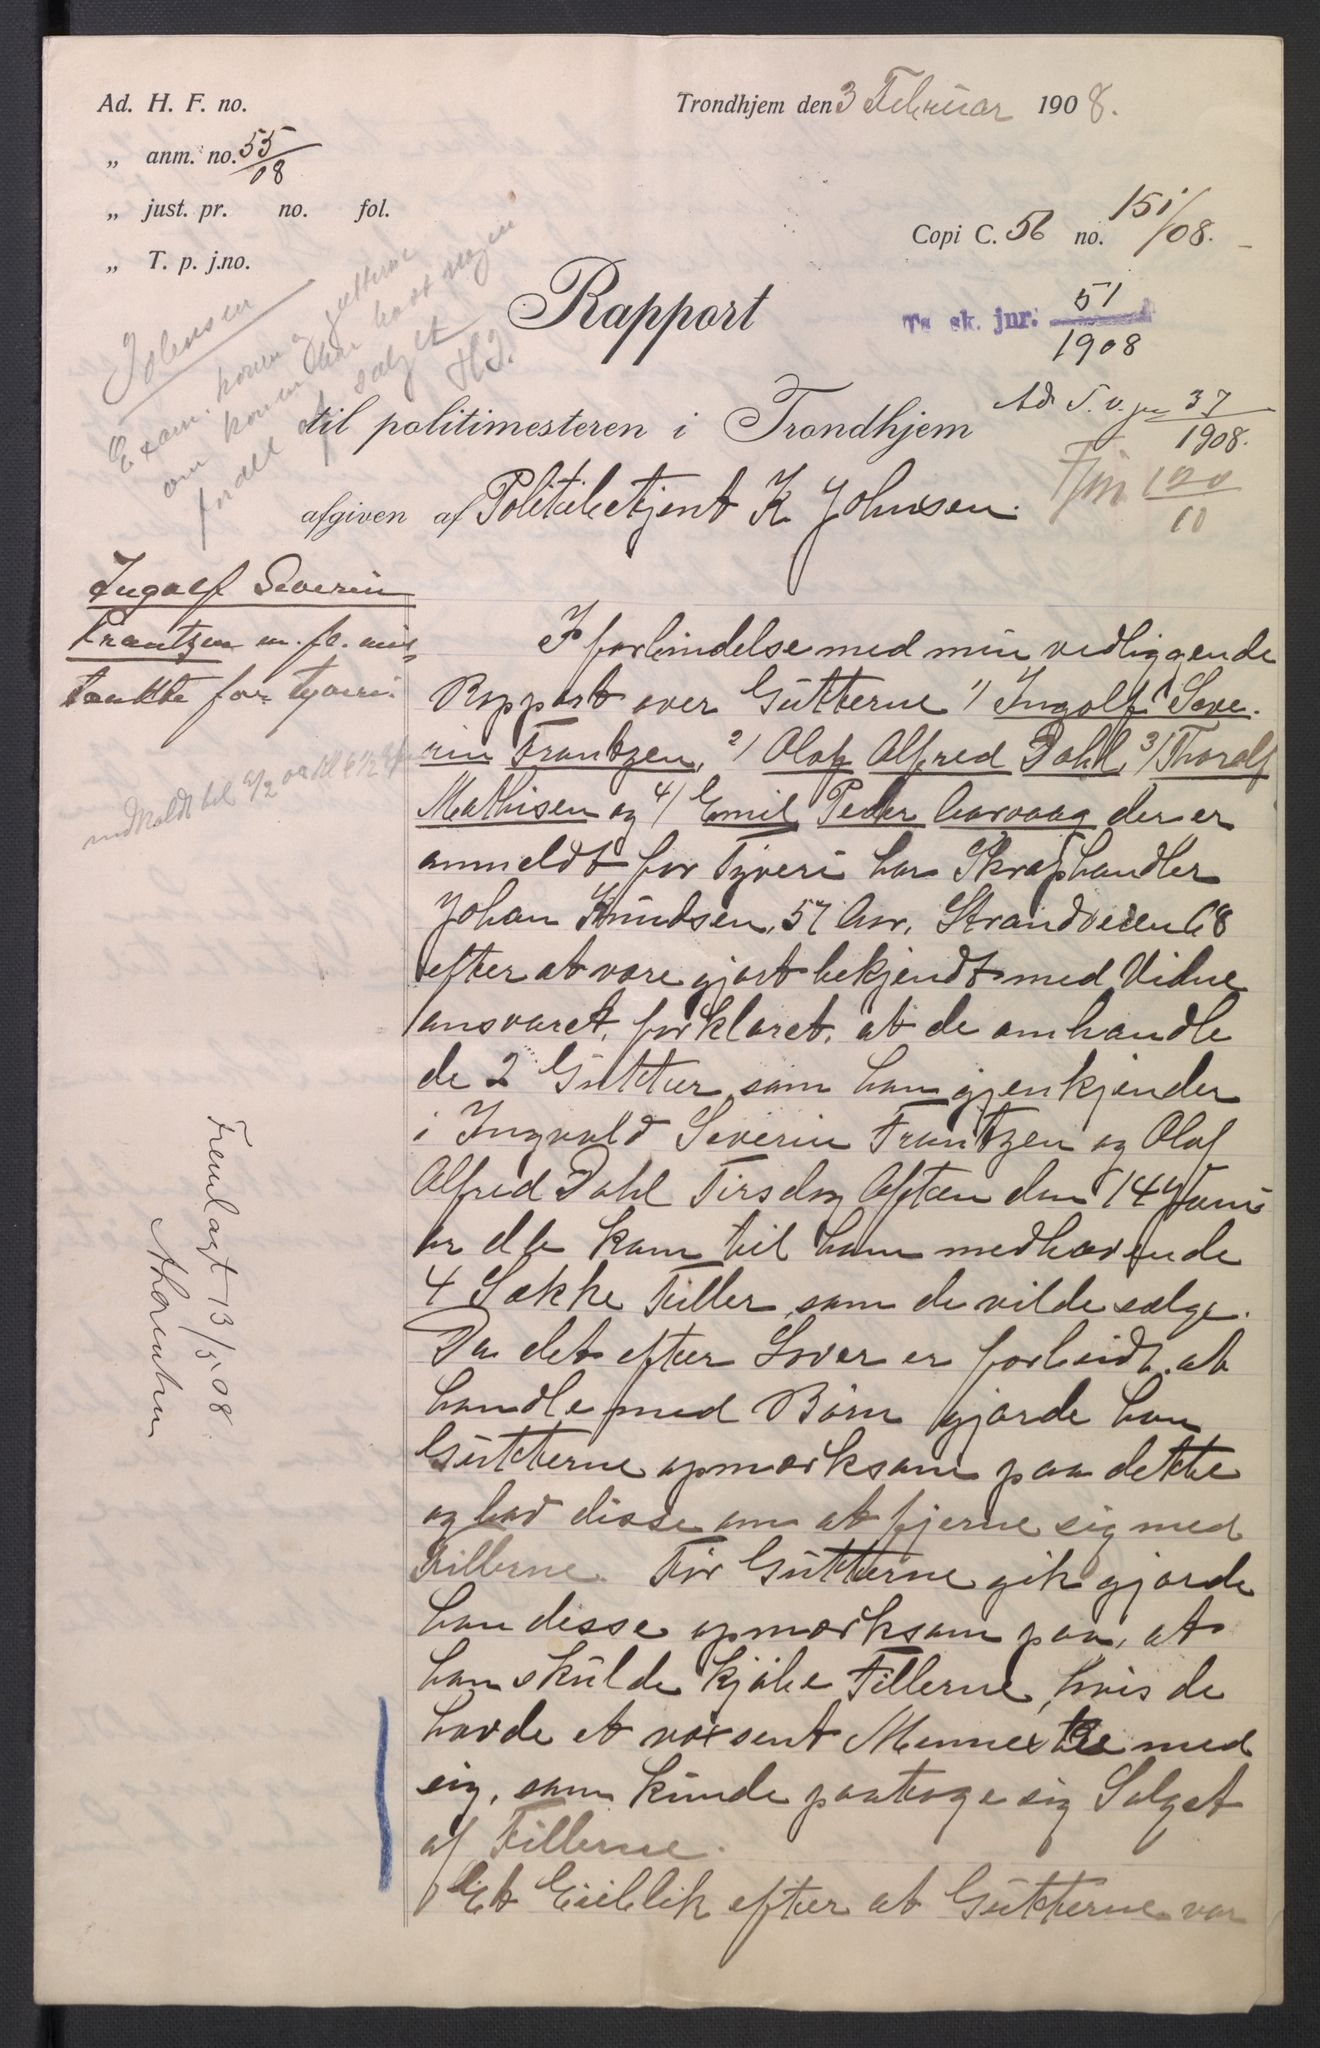 Ad. H. F. no.
Trondhjem den 3 Februar 1908.
„ anm. no. 55/08
„ just. pr. no. fol.
Copi C. 56 no. 151/08.
„ T. p. j.no.
Rapport
Ts. sk. jnr. 51
1908
Johnsen
Exam. konen og gutterne
om konen har havt nogen
fordel af salget
HJ.
til politimesteren i Trondhjem
Ad S. v. jn 37
1908.
afgiven af Politibetjent K Johnsen.
100
10
Ingolf Severin
Frantzen m. fl. mis-
tænkte for tyveri.
indkaldt til 4/2 08 kl 6 1/2
Fremlagt 13/5 08.
I forbindelse med min vedliggende
Rapport over Gutterne 1/ Ingolf Seve-
rin Frantzen, 2/ Olaf Alfred Dahl, 3/ Thoralf
Mathisen og 4/ Emil Peder Aarvaag der er
anmeldt for Tyveri har Skraphandler
Johan Knudsen, 57 Aar, Strandveien 68
efter at være gjort bekjendt med Vidne
ansvaret, forklaret, at de omhandle
de 2 Gutter som han gjenkjender
i Ingvald Severin Frantzen og Olaf
Alfred Dahl Tirsdag Aften den 14 Janu
ar d A kom til ham medhavende
4 Sække Filler som de vilde sælge.
Da det efter Loven er forbudt at
handle med Børn gjorde han
Gutterne opmærksom paa dette
og bad disse om at fjerne sig med
Fillerne. Før Gutterne gik gjorde
han disse opmærksom paa, at
han skulde kjøbe Fillerne, hvis de
havde et voxsent Menneske med
sig, som kunde paatage sig Salget
af Fillerne.
Et Øieblik efter at Gutterne var